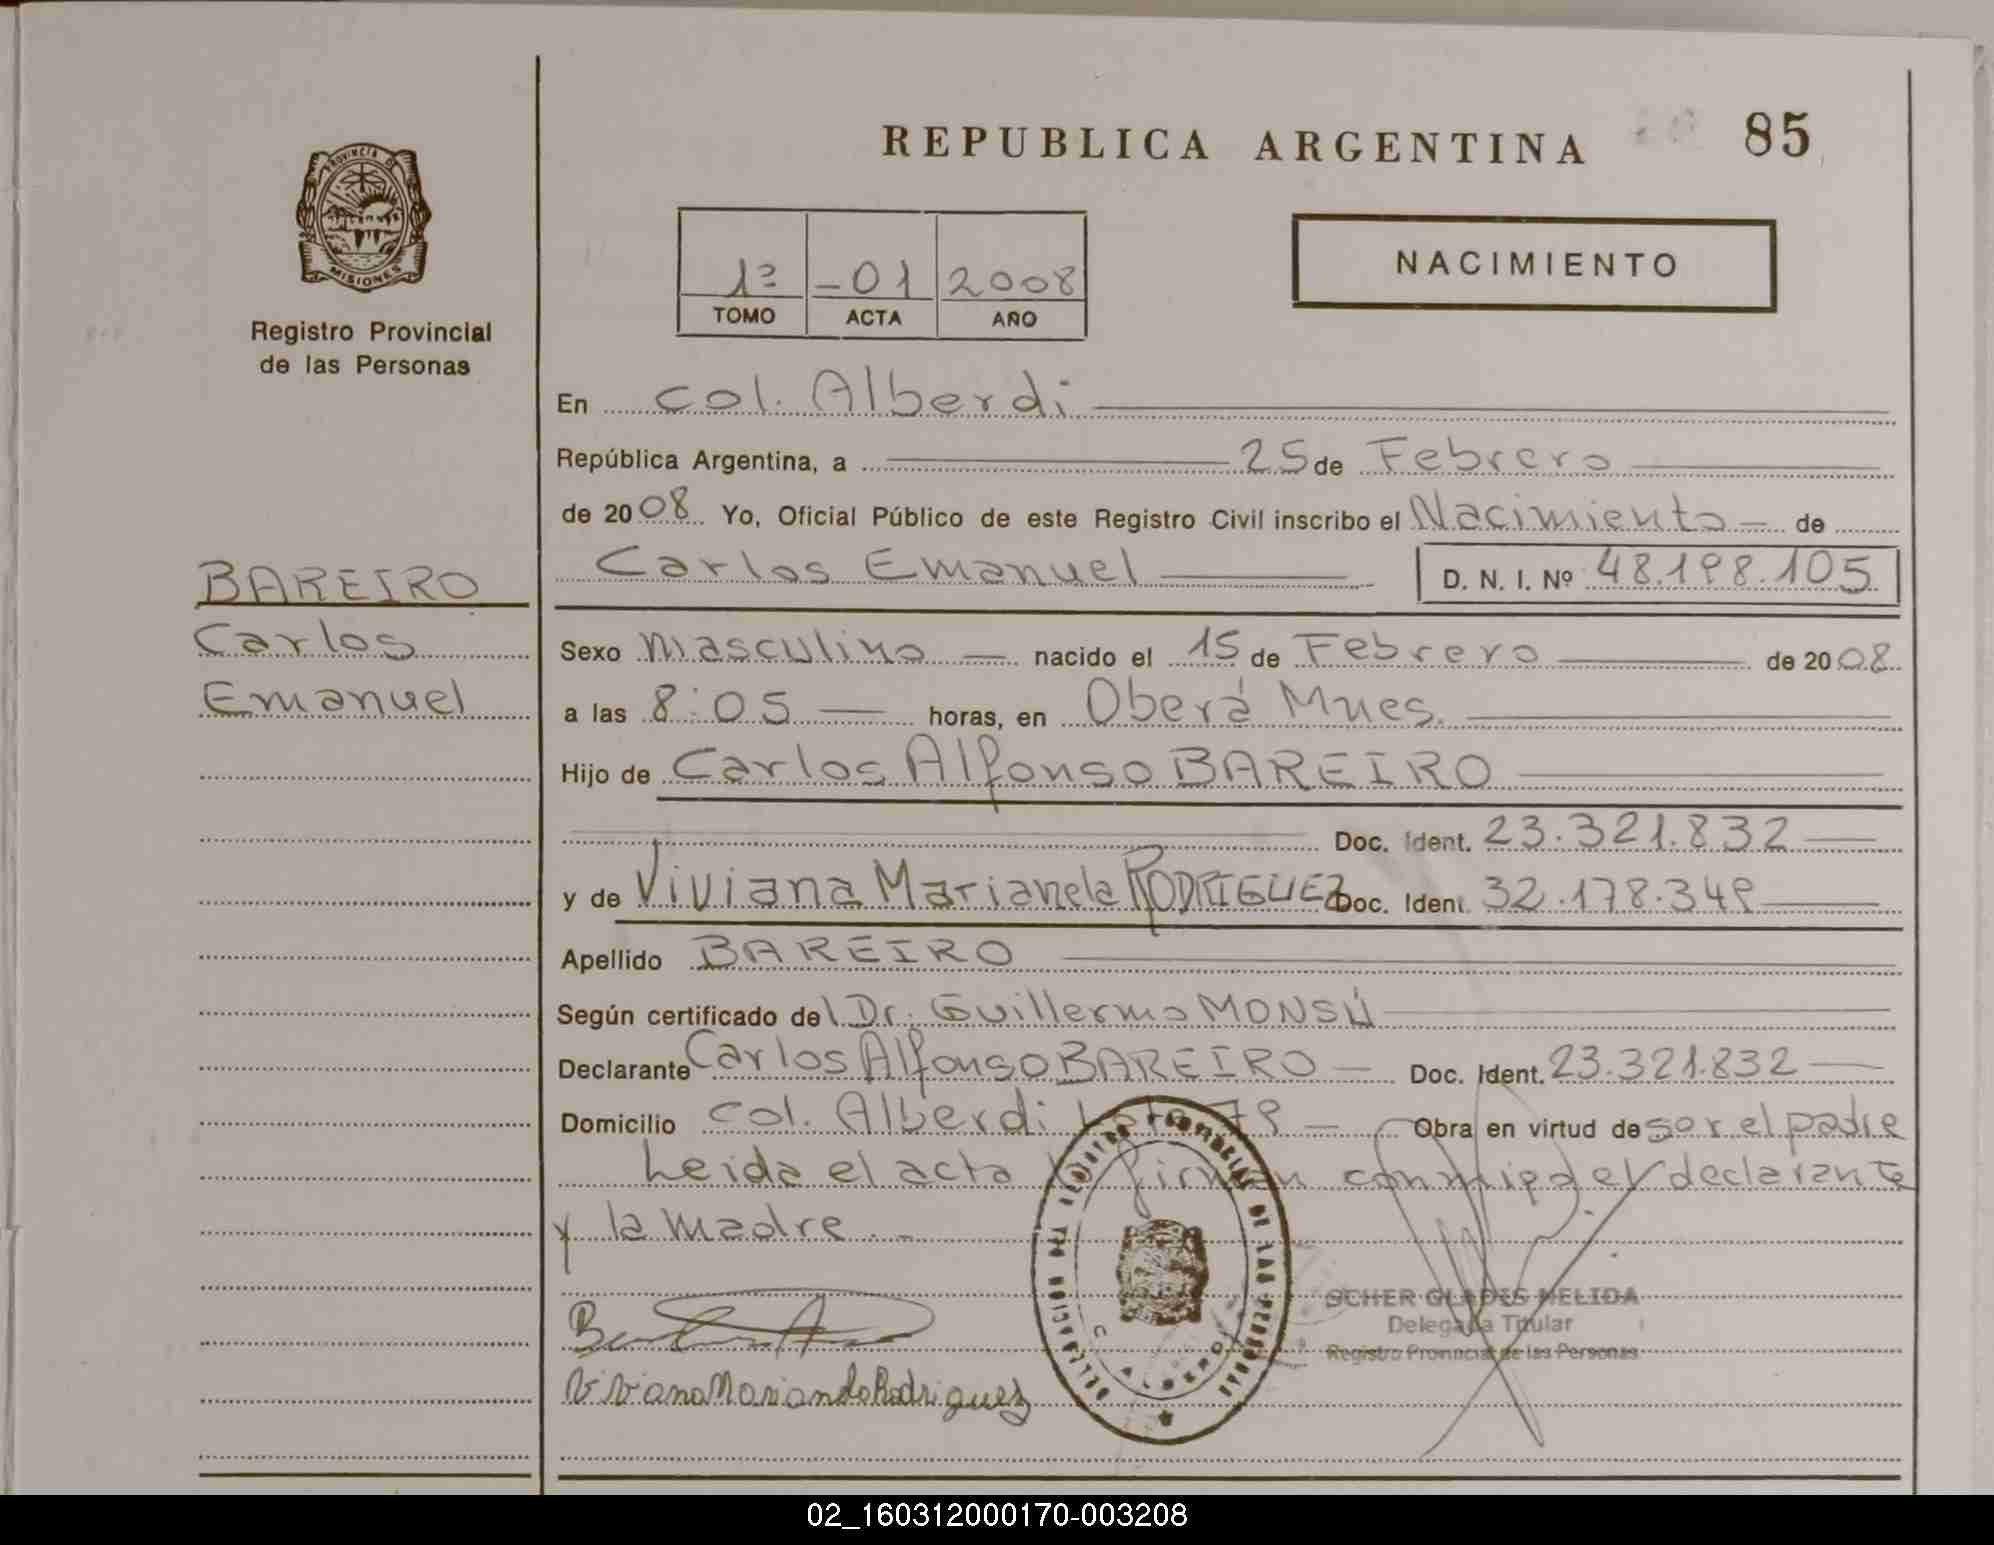 REPUBLICA ARGENTINA
85
PROVINCIA DE
MISIONES
Registro Provincial
de las Personas
1º -01 2008
TOMO ACTA AÑO
NACIMIENTO
En Col. Alberdi
República Argentina, a 25 de Febrero
de 2008 Yo, Oficial Público de este Registro Civil inscribo el Nacimiento - de
Carlos Emanuel D. N. I. Nº 48.198.105
BAREIRO
Carlos
Emanuel
Sexo Masculino nacido el 15 de Febrero de 2008
a las 8:05 horas, en Oberá Mnes.
Hijo de Carlos Alfonso BAREIRO
Doc. Ident. 23.321.832
y de Viviana Marianela RODRIGUEZ Doc. Ident. 32.178.349
Apellido BAREIRO
Según certificado del Dr. Guillermo MONSÚ
Declarante Carlos Alfonso BAREIRO Doc. Ident. 23.321.832
Domicilio Col. Alberdi Lote 79 Obra en virtud de ser el padre
Leida el acta la firman conmigo el declarante
y la madre.
DELEGACION DEL REGISTRO PROVINCIAL DE LAS PERSONAS
SCHER GLADIS NELIDA
Delegada Titular
Registro Provincial de las Personas
Viviana Marianela Rodriguez
02_160312000170-003208